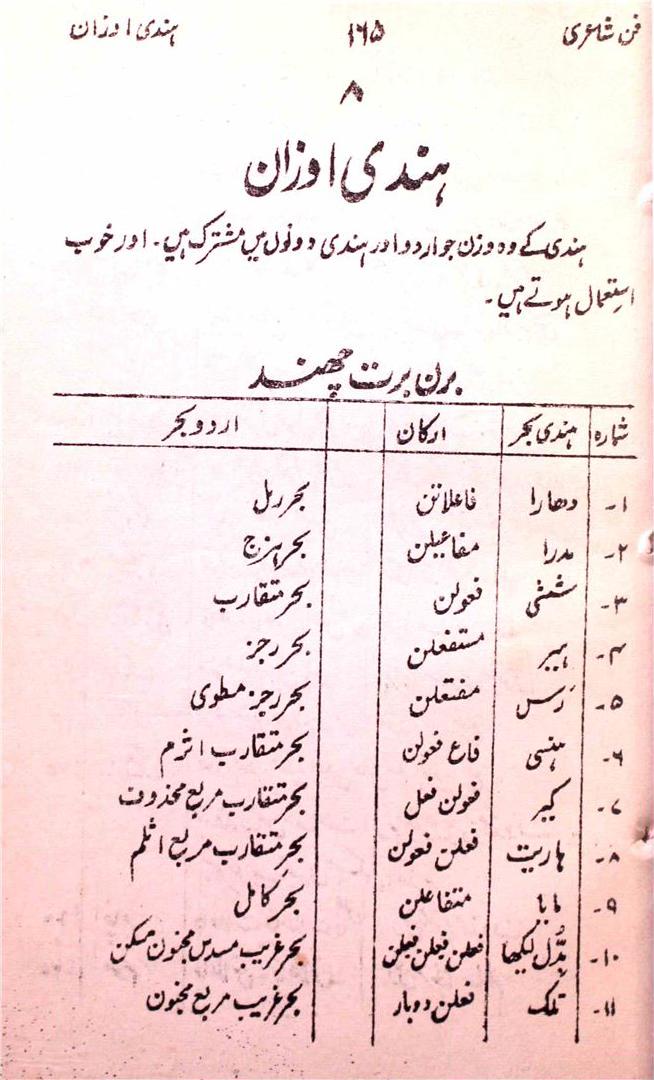 فن شاعری ۱۶۵ ہندی اوزان
۸
ہندی اوزان
ہندی کے وہ وزن جو اردو اور ہندی دونوں میں مشترک ہیں۔ اور خوب
استعمال ہوتے ہیں۔
برن برت چھند
شمارہ ہندی بحر ارکان اردو بحر
۱۔ دھارا فاعلاتن بحر رمل
۲۔ مدرا مفاعیلن بحر ہزج
۳۔ ششی فعولن بحر متقارب
۴۔ ہیر مستفعلن بحر رجز
۵۔ رَس مفتعلن بحر رجز مطوی
۶۔ ہنسی فاع فعولن بحر متقارب اثرم
۷۔ کیر فعولن فعل بحر متقارب مربع محذوف
۸۔ ہاریت فعلن فعولن بحر متقارب مربع اثلم
۹۔ متفاعلن بحر کامل
۱۰۔ بدُّل لیکھا فعلن فعلن فعلن بحر غریب مسدس مخبون مسکن
۱۱۔ تلک فعلن دوبار بحر غریب مربع مخبون